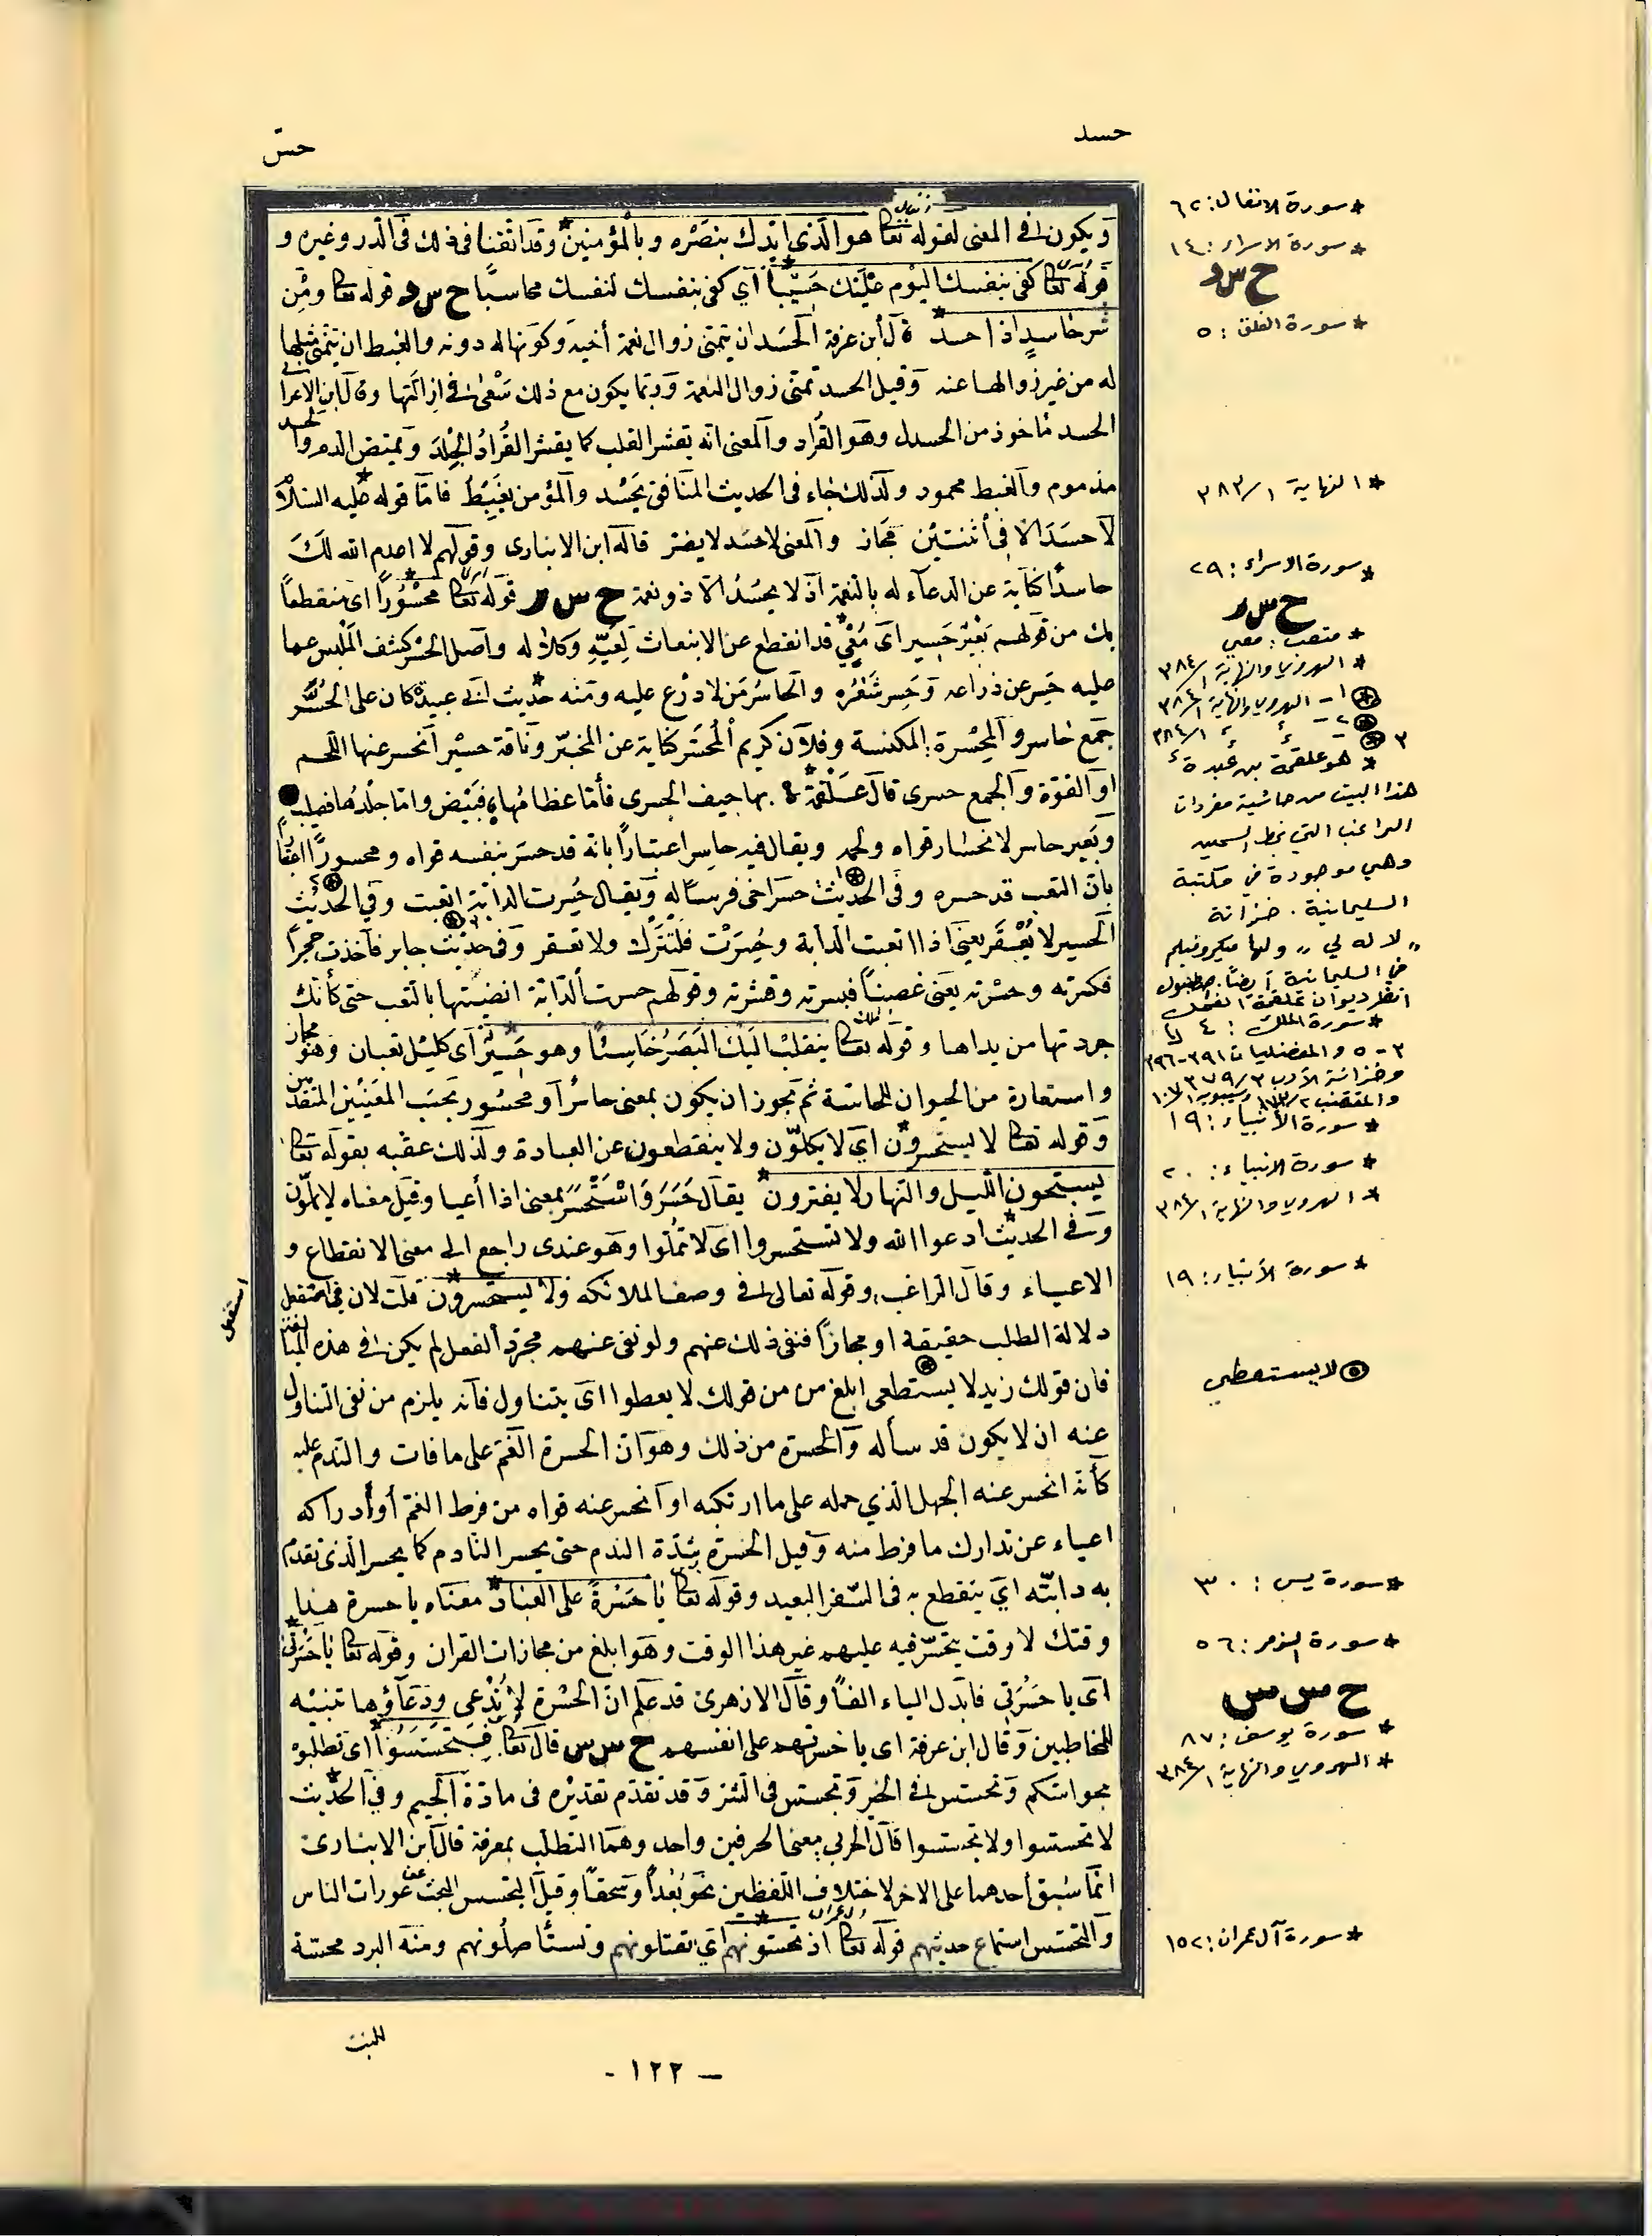 حسد
حسّ
ويكون في المعنى لقوله تعا هو الّذى ايّدك بنصره وبالمؤمنين وقد اتقنا فى ذلك فى الدر وغيره و
قوله تعا كفى بنفسك اليوم عليك حسيبا أي كفى بنفسك لنفسك محاسبًا ح س د قوله تعا ومن
شر حاسد اذا حسد قال ابن عرفة الحسد ان يتمنى زوال نعمة أخيه وكونها له دونه والغبط ان يتمنى مثلها
له من غير زوالها عنه وقيل الحسد تمنى زوال النعمة وربما يكون مع ذلك سعى في ازالتها وقال ابن الاعرابي
الحسد مأخوذ من الحسدل وهو القُراد والمعنى انه يقشر القلب كما يقشر القُرادُ الجِلدَ ويمتص الدم والحسد
مذموم والغبط محمود ولذلك جاء فى الحديث المنافق يَحْسُد والمؤمن يَغبِطُ فاما قوله عليه السلام
لا حسَدَ الا في أثنتين مجاز والمعنى لا حسَد لا يضر قاله ابن الانبارى وقولهم لا اعدم الله لكَ
حاسدًا كناية عن الدعاء له بالنعمة اذ لا يحسُدُ الا ذو نعمة ح س ر قوله تعا محسُورًا اى منقطعًا
بك من قولهم بعيرٌ حَسير اى مُعْيٍ قد انقطع عن الانبعاث لِعَيِّهِ وكلاله وأصل الحسر كشف المَلْبس عما
عليه حَسر عن ذراعه وحَسر شَعْرَه والحاسُر مَن لا درْع عليه ومنه حديث أبي عبيدة كان على الحُسَّر
جمع حاسر والمِحْسَرة المكنسة وفلان كريم المَحْسَر كناية عن المخبر وناقة حسير انحسر عنها اللحم
او القوّة والجمع حسرى قال عَلْقَمة بها جيف الحسرى فأمّا عظامُها فبيض واما جلْدها فصليب
وبَعير حاسر لانحسار قواه ولحمه ويقال فيه حاسر اعتبارًا بانه قد حسَر بنفسه قواه ومحسورًا اعتبارا
بانّ التعب قد حسره وفى الحديث حسر اخى فرسًا له ويقال حُسِرت الدابة اتعبت وفي الحديث
الحسير لا يُعْقَر يعني اذا اتعبت الدابة وحُسِرَتْ فلتُترَك ولا تعقر وفى حديث جابر فأخذت حجرًا
فكسرته وحسَرته يعنى غصنًا فبسرته وقشرته وقولهم حسرت الدّابّة انضيتها بالتعب حتى كأنك
جردتها من بداها وقوله تعا ينقلبْ اليك البصرُ خاسِئًا وهو حَسيرٌ اى كليل تعبان وهو مجاز
واستعارة من الحيوان للحاسّة ثم يجوز ان يكون بمعنى حاسر او محسُور بحَسَب المعَنيين المتقدّمين
وقوله تعا لا يستحسرون اي لا يكلّون ولا ينقطعون عن العبادة ولذلك عقبه بقوله تعا
يسبّحون الليل والنّهار لا يفترون يقال حَسَرَ وَاسْتَحْسَرَ بمعنى اذا أعيا وقيل معناه لا يملّون
وفى الحديث ادعوا الله ولا تستحسروا اى لا تَملّوا وهو عندى راجع الى معنى الانقطاع و
الاعياء وقال الراغب وقوله تعالى في وصف الملائكة ولا يستحسرون قلت لان في استفعل
دلالة الطلب حقيقة او مجازًا فنفى ذلك عنهم ولو نفى عنهم مجرّد الفعل لم يكن في هذه المبالغة
فان قولك زيد لا يستطعى ابلغ من من قولك لا يعطوا اى يتناول فانه يلزم من نفى التناول
عنه ان لا يكون قد سأله والحسرة من ذلك وهو انّ الحسرة الغمّ على ما فات والندم عليه
كأنّه انحسر عنه الجهل الذي حمله على ما ارتكبه او انحسر عنه قواه من فرط الغمّ أو أدراكه
اعياء عن تدارك ما فرط منه وقيل الحسرة شِدّة الندم حتى يحسر النادم كما يحسر الذى تقدّم
به دابّته اي ينقطع به فى السّفر البعيد وقوله تعا يا حَسْرةً على العباد معناه يا حسرة هذا
وقتك لا وقت يتحسّر فيه عليهم غير هذا الوقت وهو ابلغ من مجازات القران وقوله تعا يا حَسْرتى
اى يا حَسْرَتِي فابدل الياء الفًا وقال الازهرى قد علم انّ الحسْرة لا تُدْعى ودعاؤها تنبيه
للمخاطبين وقال ابن عرفة اى يا حسرتهم على انفسهم ح س س قال تعا فتَحَسَّسُوا اى تطلّبوه
بحواسّكم وتحسّس في الخير وتجسّس في الشّر وقد تقدّم تقديره فى مادّة الجيم وفي الحديث
لا تحسّسوا ولا تجسّسوا قال الحربي معنى الحرفين واحد وهما التطلّب بمعرفة قال ابن الانبارى
انّما سُبق احدهما على الاخر لاختلاف اللفظين نحو بُعْدًا وسحقًا وقيل التجسس البحث عن عورات الناس
والتحسّس استماع حديثهم قوله تعا اذ تحسّونهم أي تقتلونهم وتستأصلونهم ومنه البرد محسّة
للنبت
- ١٢٢ -
استفعل
* سورة الانفال: ٦٢
* سورة الاسراء: ١٤
ح س د
* سورة الفلق: ٥
* النهاية ١/٣٨٣
* سورة الاسراء: ٢٩
ح س ر
* متعب: معيي
* الهروي والنهاية ١/٣٨٤
١ - الهروي والنهاية ١/٣٨٤
٢ - ١/٣٨٤
٣
* هو علقمة بن عَبدة
هذا البيت من حاشية مفردات
الراغب التي بخط السمين
وهي موجودة في مكتبة
السليمانية. خزانة
„ لا له لي „ ولها ميكروفيلم
في السليمانية أيضًا
انظر ديوان علقمة الفحل
* سورة الملك: ٤
والمفضليات ٣٩١-٣٩٦
وخزانة الأدب
* سورة الأنبياء: ١٩
* سورة الانبياء: ٢٠
* الهروي والنهاية ١/٣٨٤
* سورة الأنبياء: ١٩
لا يستعطي
* سورة يس: ٣٠
* سورة الزمر: ٥٦
ح س س
* سورة يوسف: ٨٧
* الهروي والنهاية ١/٣٨٤
* سورة آل عمران: ١٥٢